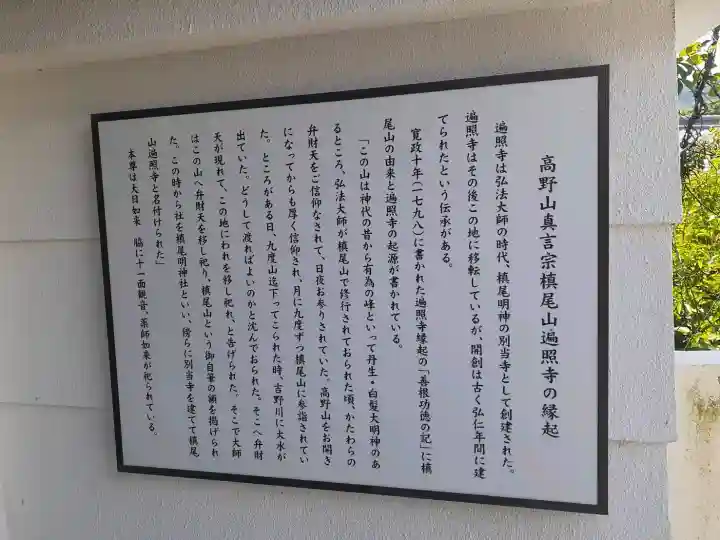 高野山真言宗槙尾山遍照寺の縁起
遍照寺は弘法大師の時代、槙尾明神の別当寺として創建された。
遍照寺はその後この地に移転しているが、開創は古く弘仁年間に建
てられたという伝承がある。
寛政十年(一七九八)に書かれた遍照寺縁起の「善根功徳の記」に槙
尾山の由来と遍照寺の起源が書かれている。
「この山は神代の昔から有為の峰といって丹生・白髪大明神のあ
るところ、弘法大師が槙尾山で修行されておられた頃、かたわらの
弁財天をご信仰なされて、日夜お参りされていた。高野山をお開き
になってからも厚く信仰され、月に九度ずつ槙尾山に参詣されてい
た。ところがある日、九度山迄下ってこられた時、吉野川に大水が
出ていた。どうして渡ればよいのかと沈んでおられた。そこへ弁財
天が現れて、この地にわれを移し祀れ、と告げられた。そこで大師
はこの山へ弁財天を移し祀り、槙尾山という御自筆の額を掲げられ
た。この時から社を槙尾明神社といい、傍らに別当寺を建てて槙尾
山遍照寺と名付けられた」
本尊は大日如来　脇に十一面観音、薬師如来が祀られている。